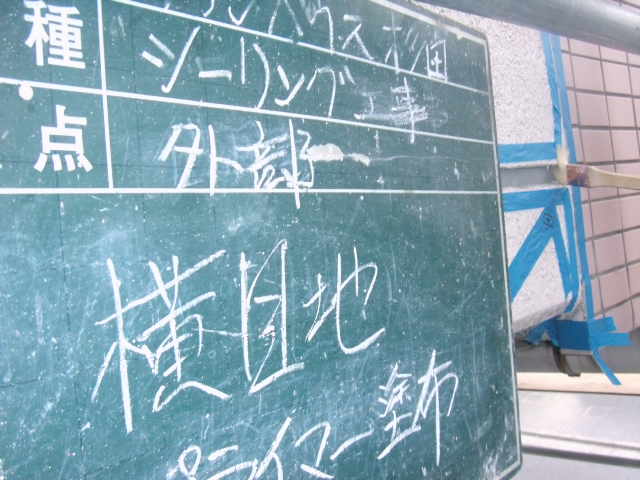 種 シーリング工事
点 外部
横目地
プライマー塗布